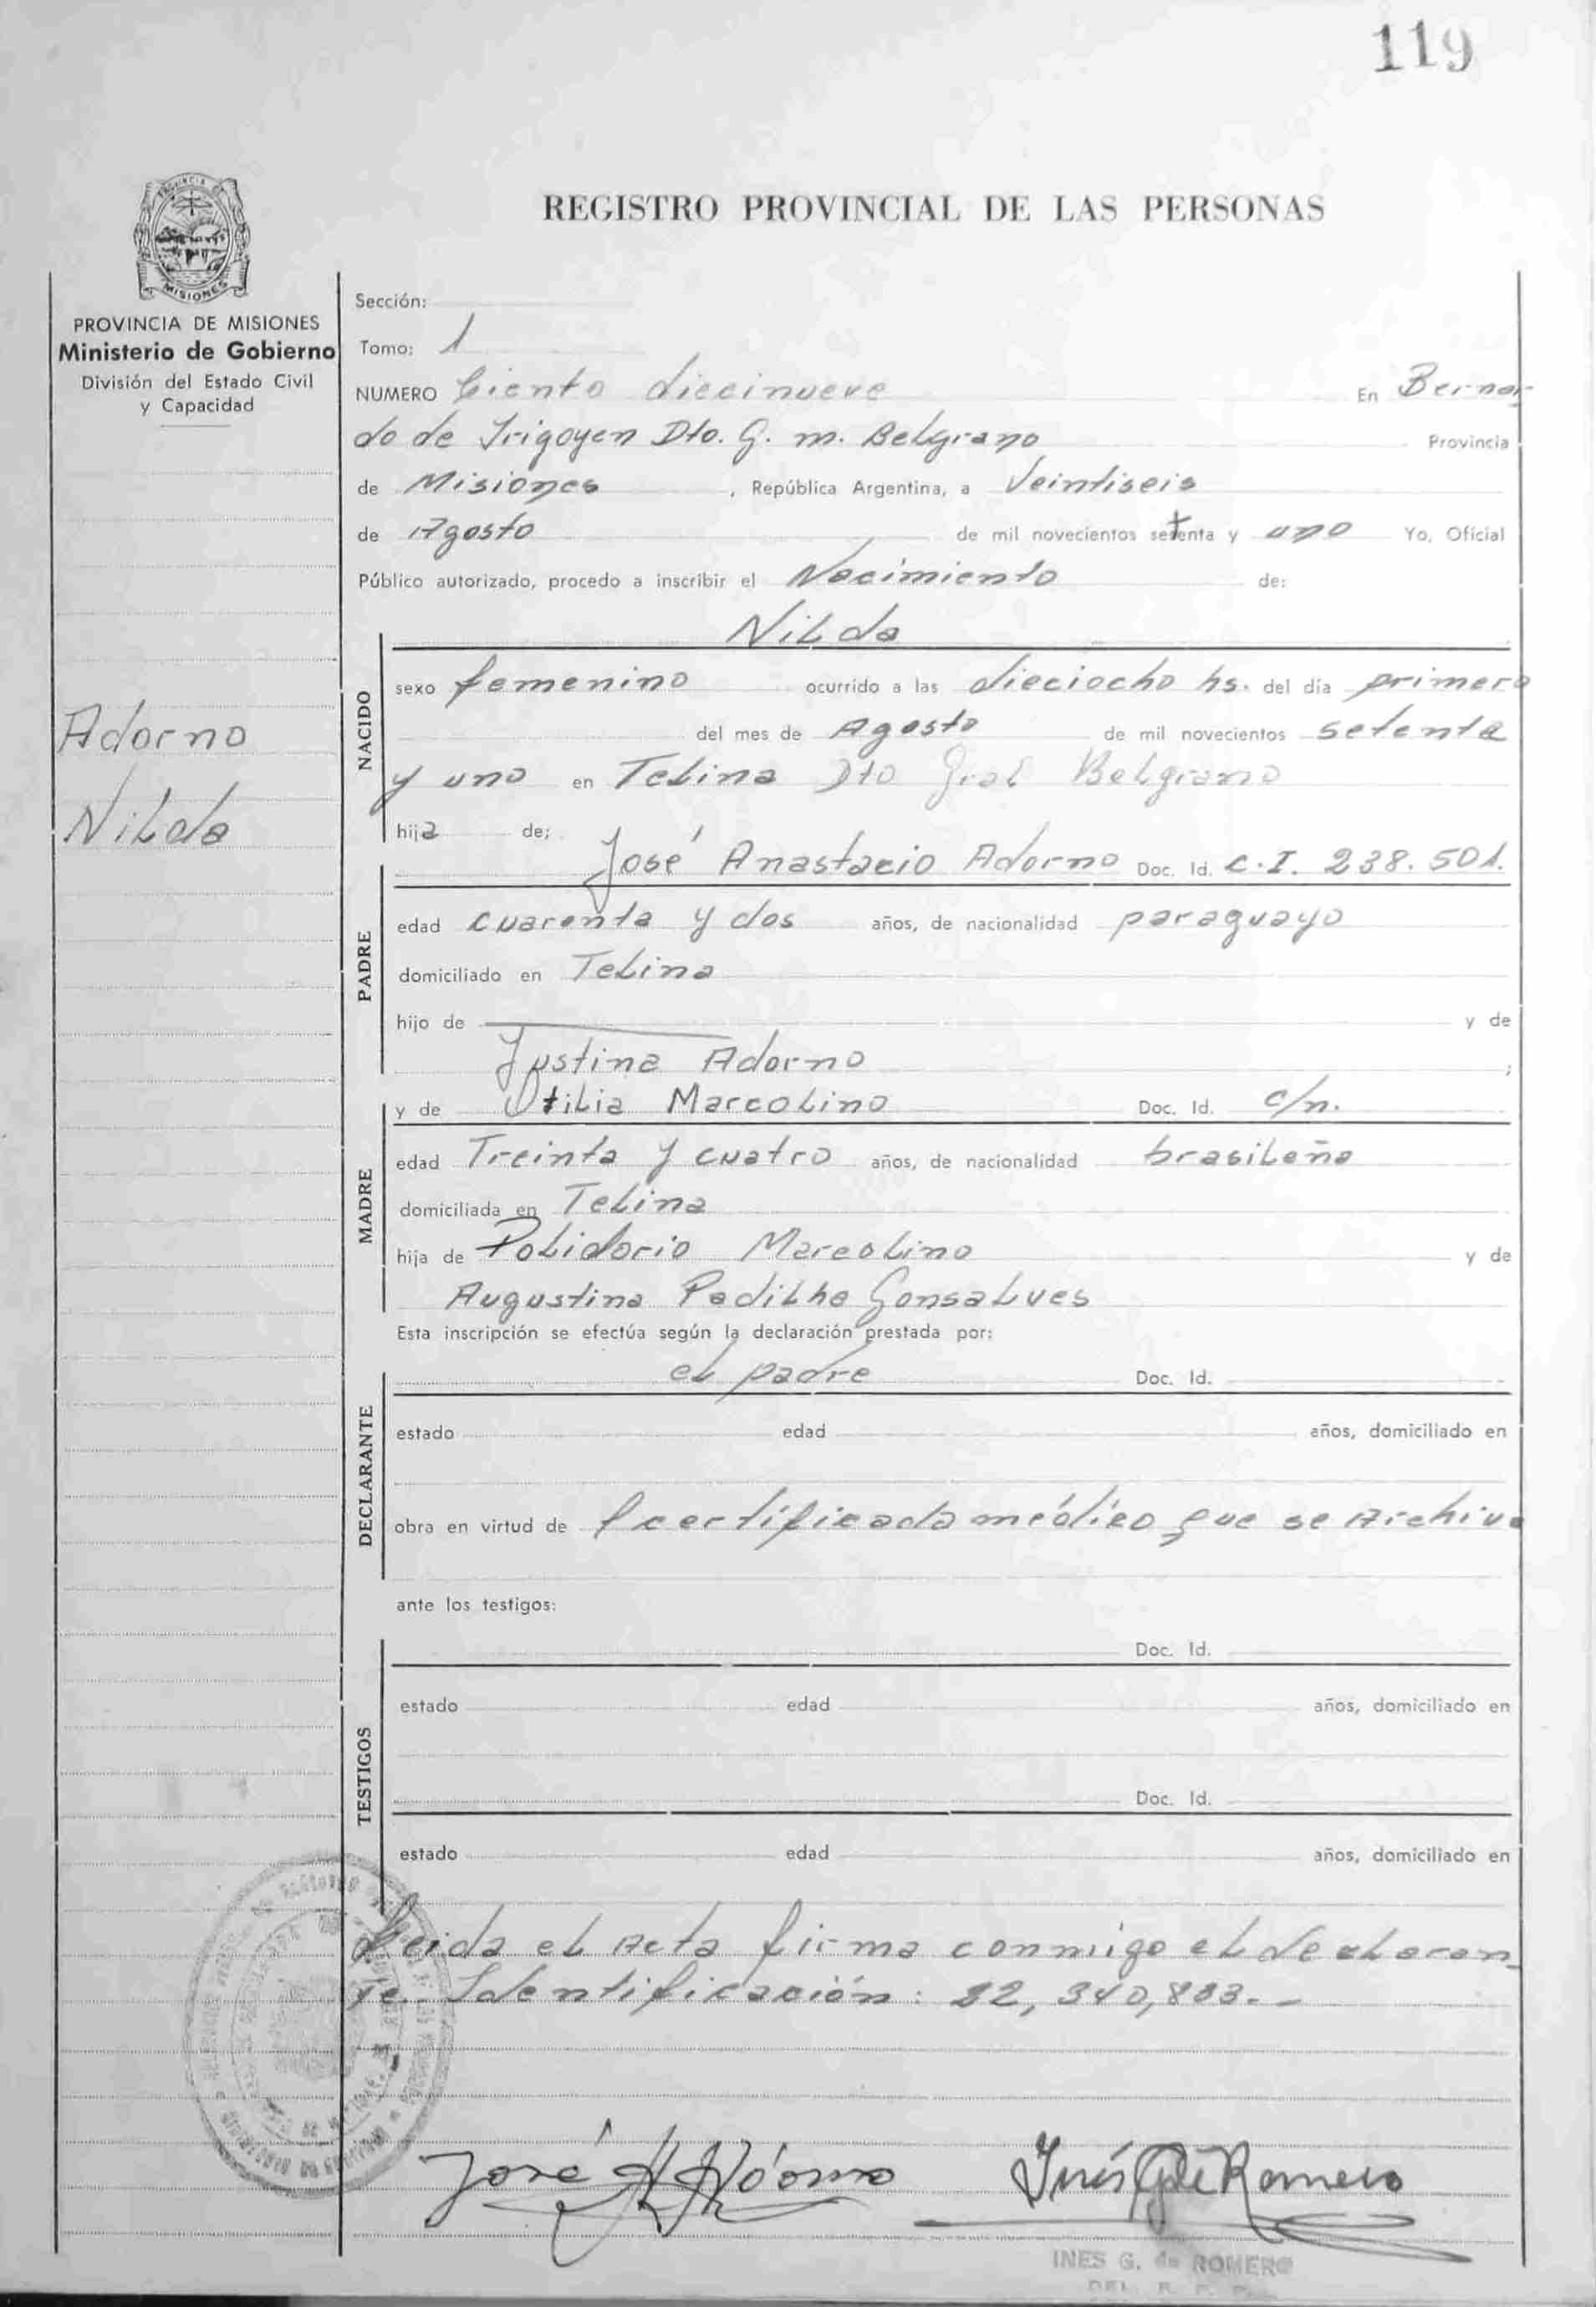 119
REGISTRO PROVINCIAL DE LAS PERSONAS
PROVINCIA DE MISIONES
MISIONES
PROVINCIA DE MISIONES
Ministerio de Gobierno
División del Estado Civil
y Capacidad
Adorno
Nilda
Sección:
Tomo: 1
NUMERO Ciento diecinueve En Bernar
do de Irigoyen Dto. G. M. Belgrano Provincia
de Misiones, República Argentina, a Veintiseis
de Agosto de mil novecientos setenta y uno Yo, Oficial
Público autorizado, procedo a inscribir el Nacimiento de:
Nilda
NACIDO
sexo femenino ocurrido a las dieciocho hs. del día primero
del mes de Agosto de mil novecientos setenta
y uno en Telina Dto Gral Belgrano
hija de;
José Anastacio Adorno Doc. Id. C.I. 238.501.
PADRE
edad cuarenta y dos años, de nacionalidad paraguayo
domiciliado en Telina
hijo de y de
Justina Adorno ;
y de Otilia Marcolino Doc. Id. c/n.
MADRE
edad Treinta y cuatro años, de nacionalidad brasileña
domiciliada en Telina
hija de Polidorio Marcolino y de
Augustina Padilha Gonsalves
Esta inscripción se efectúa según la declaración prestada por:
el padre Doc. Id.
DECLARANTE
estado edad años, domiciliado en
obra en virtud de certificado médico que se Archiva
ante los testigos:
Doc. Id.
TESTIGOS
estado edad años, domiciliado en
Doc. Id.
estado edad años, domiciliado en
Leida el Acta firma conmigo el declaran
te. Identificación: 22,340,883.-
José A Adorno Inés G de Romero
INES G. de ROMERO